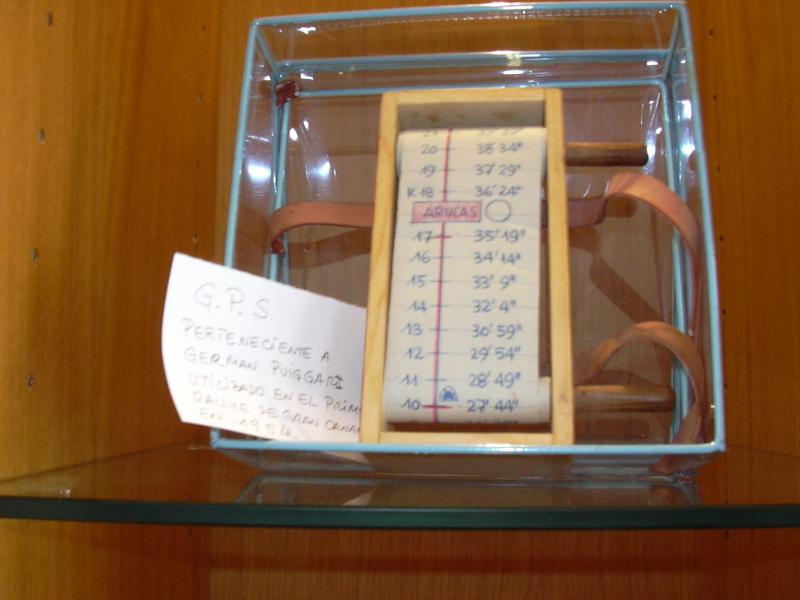 20 38'34"
19 37'29"
K 18 36'24"
ARUCAS
17 35'19"
16 34'14"
15 33'9"
14 32'4"
13 30'59"
12 29'54"
11 28'49"
10 27'44"
G.P.S.
PERTENECIENTE A
GERMAN PUIGGARI
UTILIZADO EN EL
RALLYE DE GRAN
EN 1954